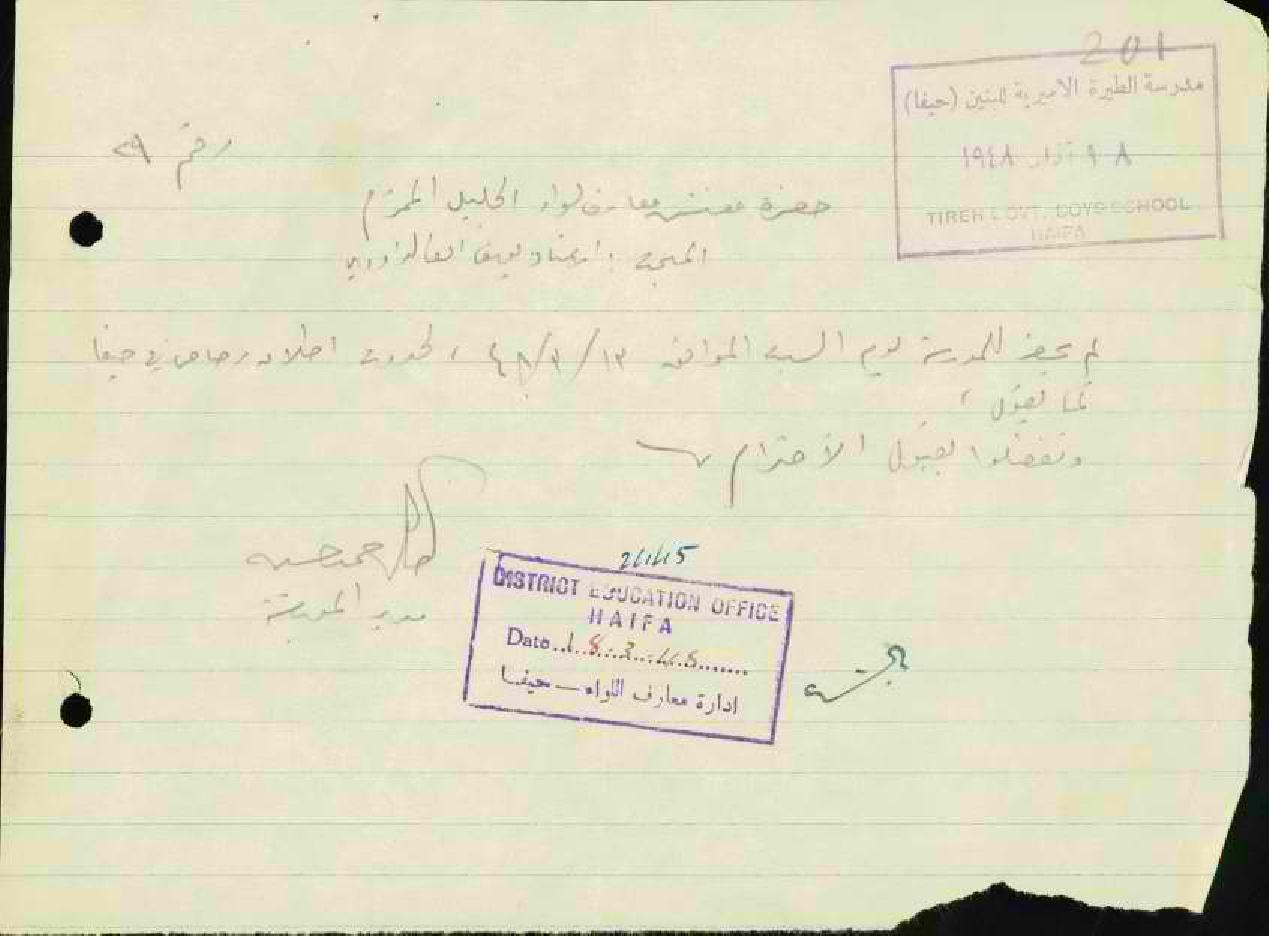 201
مدرسة الطيرة الاميرية للبنين (حيفا)
آذار ١٩٤٨
TIREH GOVT. BOYS SCHOOL
HAIFA
رقم ٢٩
حضرة مفتش معارف لواء الجليل المحترم
المبحث : الاستاذ
لم يحضر للمدرسة يوم السبت الموافق ١٣/٣/٤٨ ، لحدوث اطلاق رصاص في حيفا
كما يقول ،
وتفضلوا بقبول الاحترام
مدير المدرسة
DISTRICT EDUCATION OFFICE
HAIFA
Date
ادارة معارف اللواء — حيفا